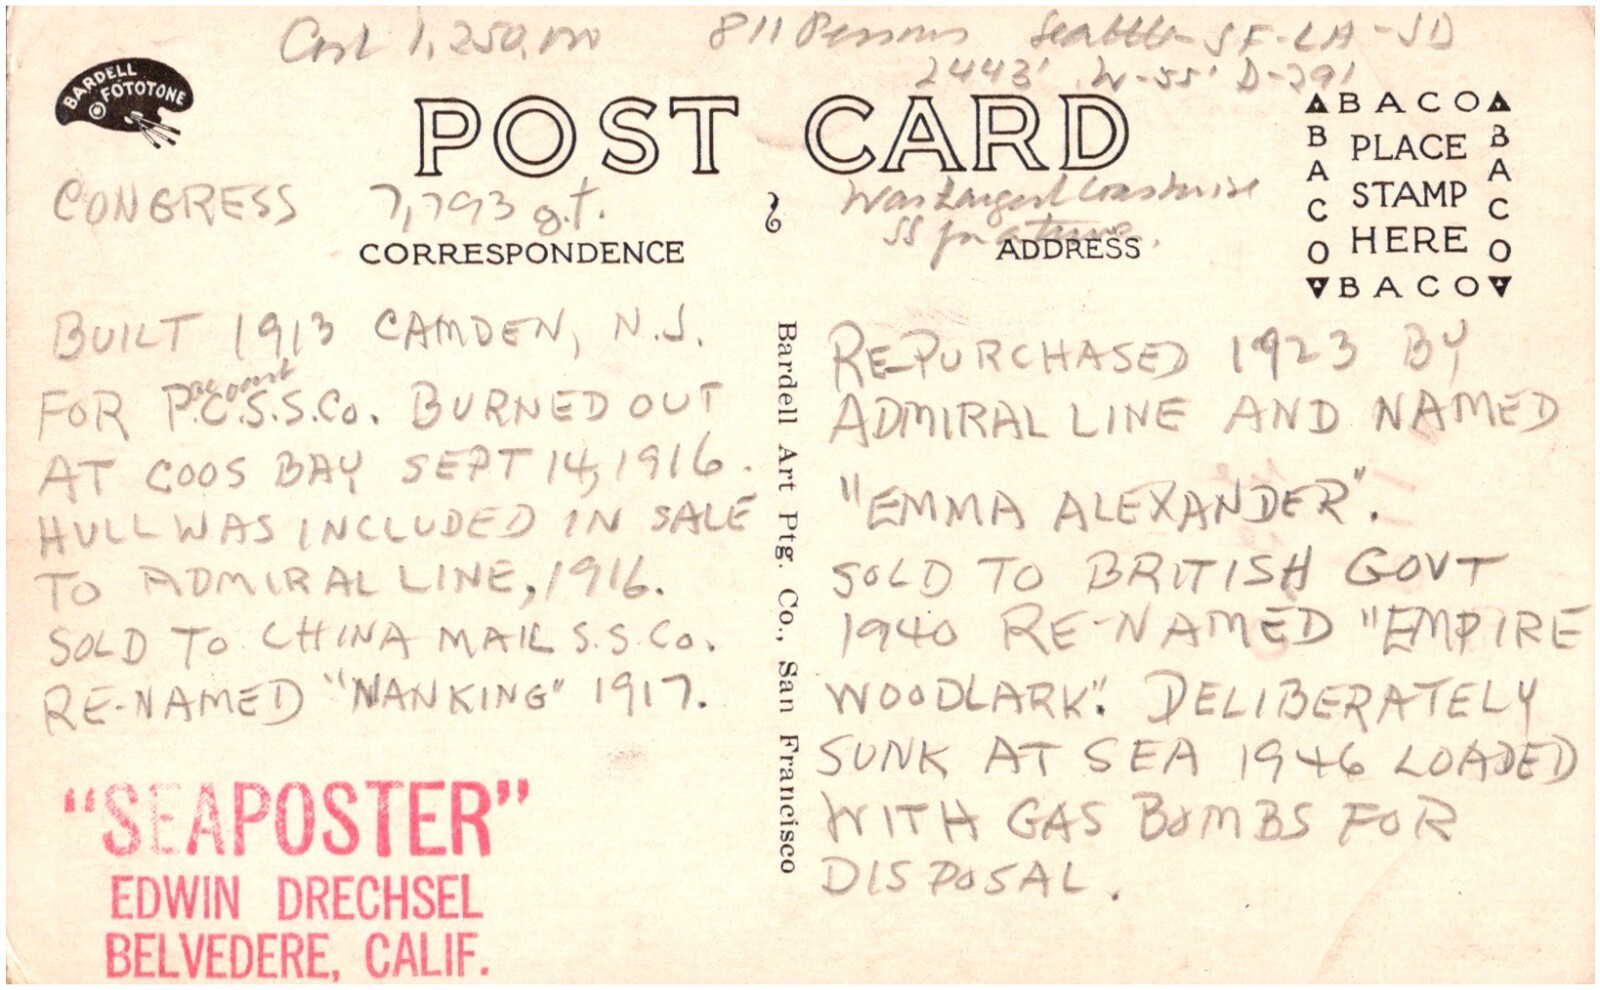 Cost 1,250,000 811 Persons Seattle-SF-LA-SD
W-55'
BARDELL
FOTOTONE
POST CARD
▲BACO▲
BACO
PLACE
STAMP
HERE
BACO
▼BACO▼
CONGRESS 7,793 g.t.
Was Largest Coastwise
SS for a time.
CORRESPONDENCE
ADDRESS
BUILT 1913 CAMDEN, N.J.
FOR P.C.S.S.Co. BURNED OUT
AT COOS BAY SEPT 14, 1916.
HULL WAS INCLUDED IN SALE
TO ADMIRAL LINE, 1916.
SOLD TO CHINA MAIL S.S.Co.
RE-NAMED "NANKING" 1917.
"SEAPOSTER"
EDWIN DRECHSEL
BELVEDERE, CALIF.
Bardell Art Ptg. Co., San Francisco
RE-PURCHASED 1923 BY
ADMIRAL LINE AND NAMED
"EMMA ALEXANDER".
SOLD TO BRITISH GOVT
1940 RE-NAMED "EMPIRE
WOODLARK". DELIBERATELY
SUNK AT SEA 1946 LOADED
WITH GAS BOMBS FOR
DISPOSAL.